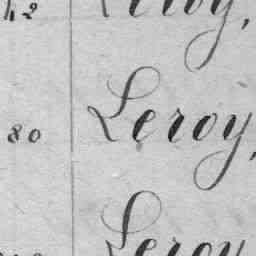 42 Leroy,
80 Leroy,
Leroy